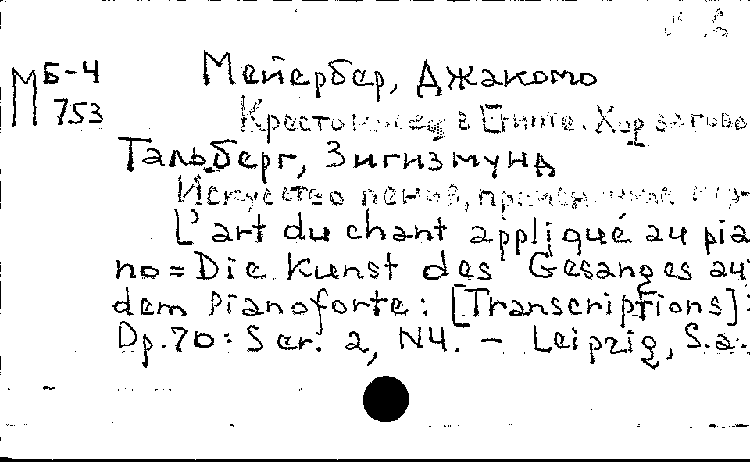 М Б-4 Мейербер, Джакомо
753 Крестоносец в Египте. Хор загово
Тальберг, Зигизмунд
Искусство пения, примененное
L'art du chant appliqué au pia
no = Die Kunst des Gesanges auf
dem Pianoforte: [Transcriptions]:
Op. 70: Ser. 2, N4. – Leipzig, S.a.